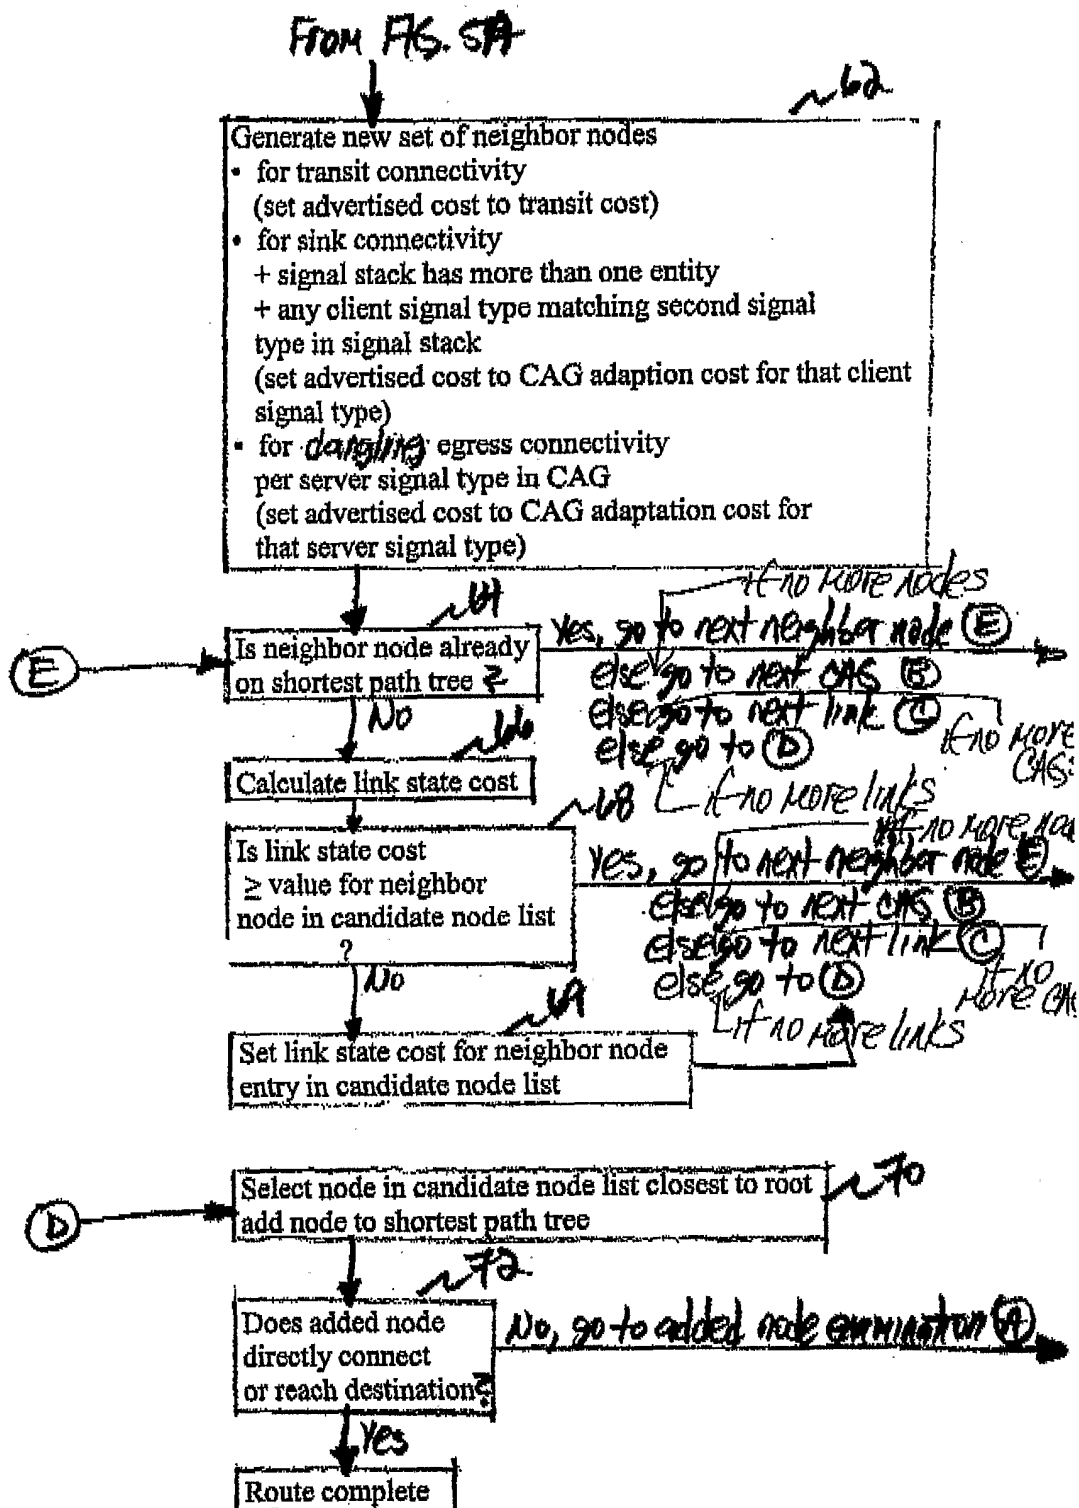 FROM FIG. 5A
62
Generate new set of neighbor nodes
• for transit connectivity
(set advertised cost to transit cost)
• for sink connectivity
+ signal stack has more than one entity
+ any client signal type matching second signal
type in signal stack
(set advertised cost to CAG adaption cost for that client
signal type)
• for dangling egress connectivity
per server signal type in CAG
(set advertised cost to CAG adaptation cost for
that server signal type)
if no more nodes
64
E
Is neighbor node already
on shortest path tree ?
Yes, go to next neighbor node E
else go to next CAG B
else go to next link C
else go to D
if no more
CAGs
if no more links
No
66
Calculate link state cost
68
Is link state cost
≥ value for neighbor
node in candidate node list
?
if no more nod
Yes, go to next neighbor node E
else go to next CAG B
else go to next link C
else go to D
if no
more CAG
if no more links
No
69
Set link state cost for neighbor node
entry in candidate node list
D
70
Select node in candidate node list closest to root
add node to shortest path tree
72
Does added node
directly connect
or reach destination?
No, go to added node examination A
Yes
Route complete